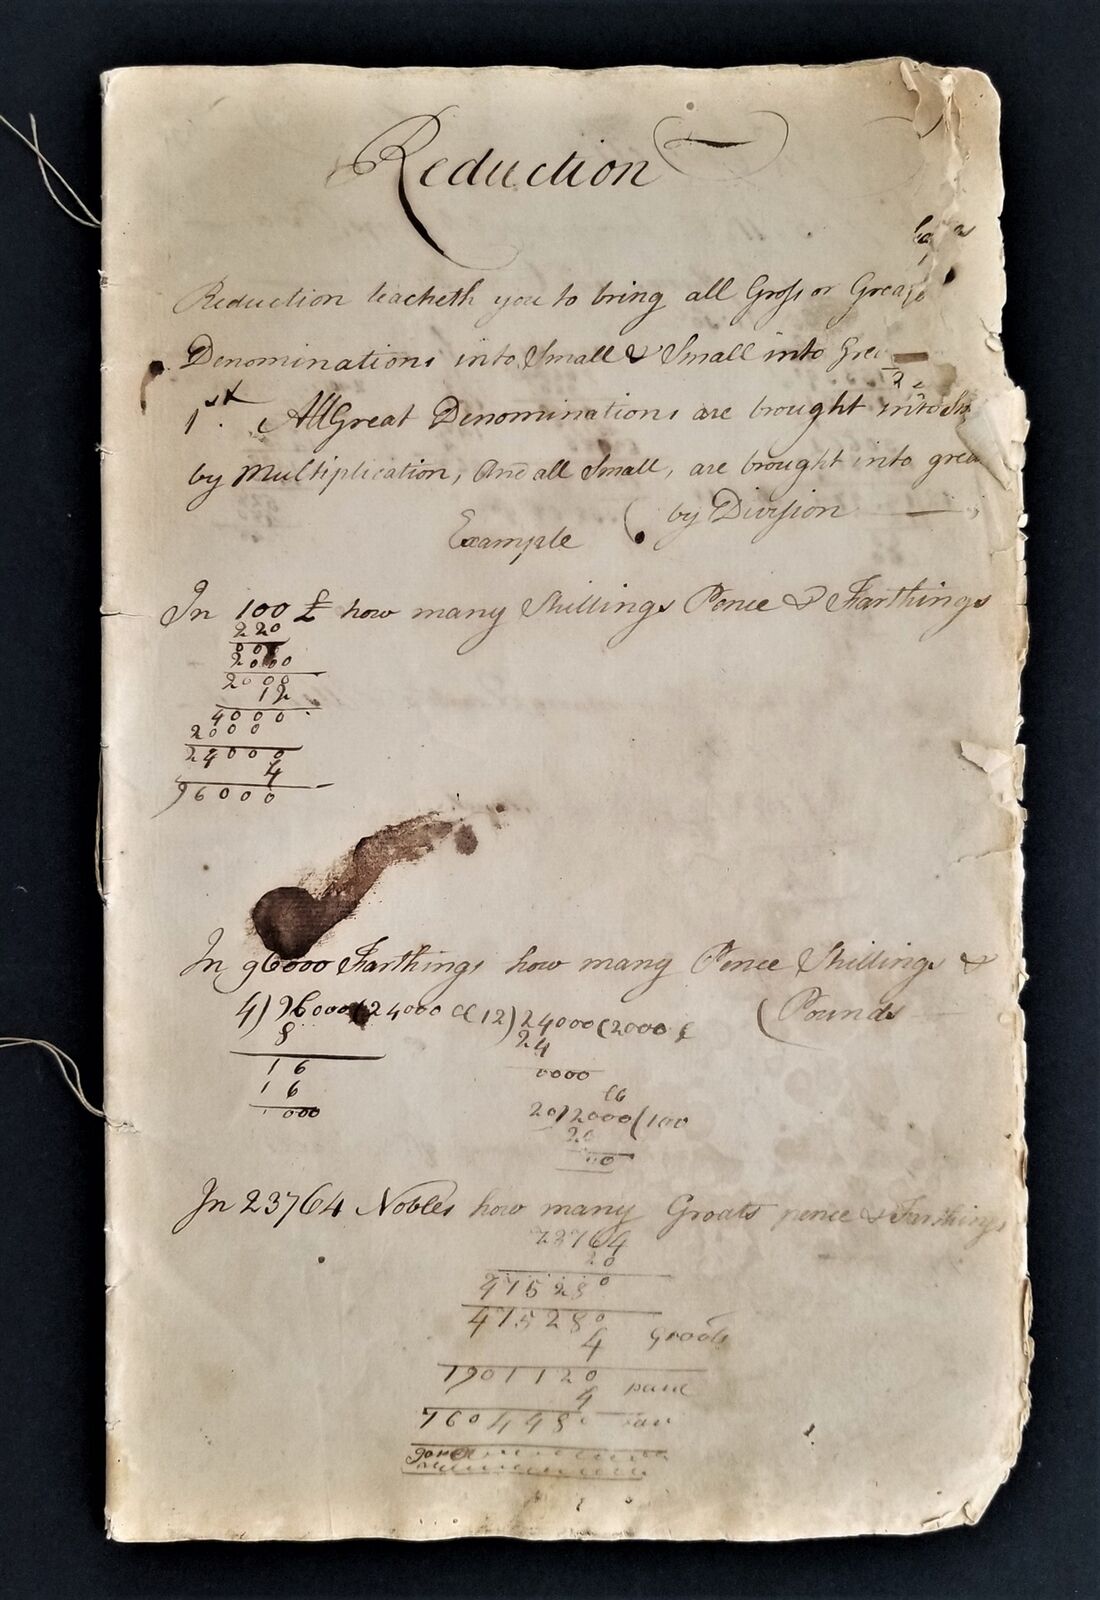 Reduction
Reduction teacheth you to bring all Gross or Great
Denominations into Small & Small into Grea
1st. All Great Denominations are brought into Sm
by Multiplication, And all Small, are brought into grea
by Division
Example
In 100 £ how many Shillings Pence & Farthings
220
000
2000
2000
12
4000
2000
24000
4
96000
In 96000 Farthings how many Pence Shillings &
Pounds
4) 96000 (24000 12) 24000 (2000
8 24
16 0000
16 20) 2000 (100
000 20
00
In 23764 Nobles how many Groats pence & Farthings
23764
20
475280
475280
4 Groats
1901120
4 pence
7604480 far